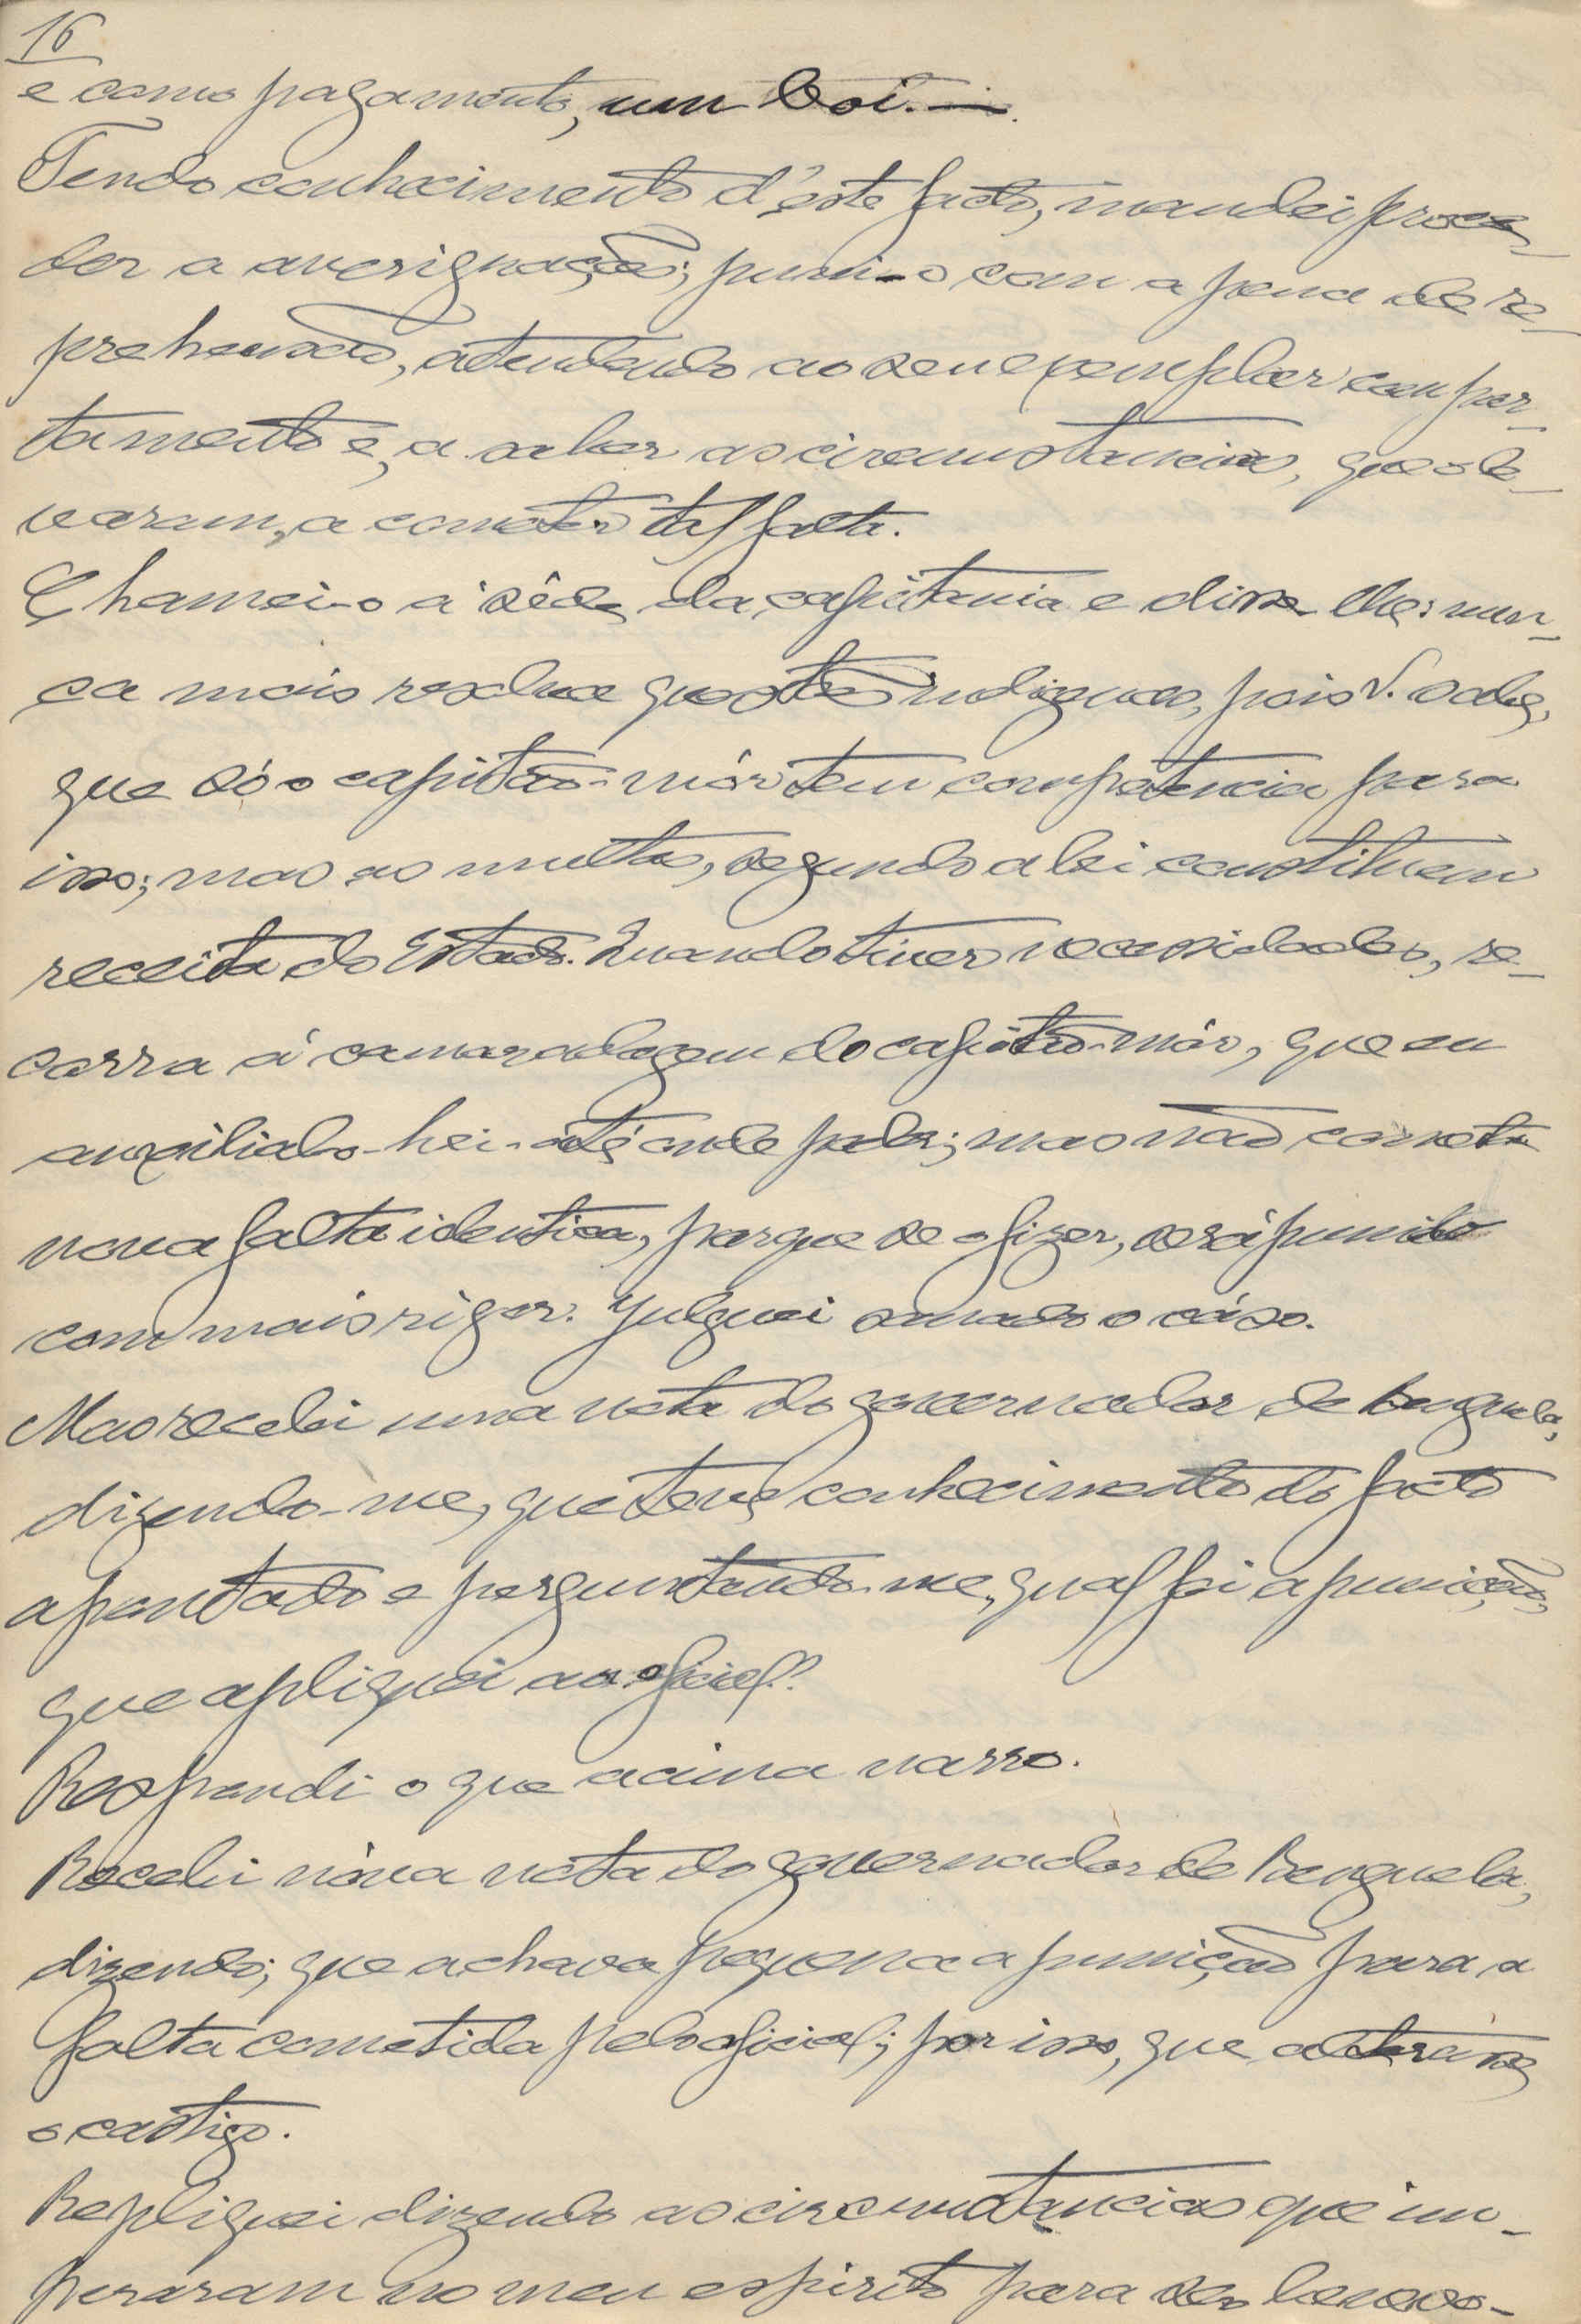 16
e como pagamento, um boi.—
Tendo conhecimento d'este facto, mandei proce-
der a averiguação; puni-o com a pena de re-
prehensão, atendendo ao seu exemplar compor-
tamento e, a saber as circumstancias, que o le-
varam, a cometer tal falta.
Chamei-o á séde da capitania e disse-lhe: nun-
ca mais resolva questões indigenas, pois V. sabe,
que só o capitão-mór tem competencia para
isso; mas as multas, segundo a lei constituem
receita do Estado. Quando tiver necessidades, re-
corra á camaradagem do capitão-mór, que eu
auxilialo-hei-até onde poder; mas não cometa
nova falta identica, porque se o fizer, será punido
com mais rigor. Julguei sanado o cáso.
Mas recebi uma nota do governador de Benguela,
dizendo-me, que teve conhecimento do facto
apontado e perguntando-me, qual foi a punição,
que apliquei ao oficial??
Respondi o que acima narro.
Recebi nóva nota do governador de Benguela,
dizendo; que achava pequena a punição para a
falta cometida pelo oficial; por isso, que alterásse
o castigo.
Repliquei dizendo as circumstancias que im-
peráram no meu espirito para ser benevo-